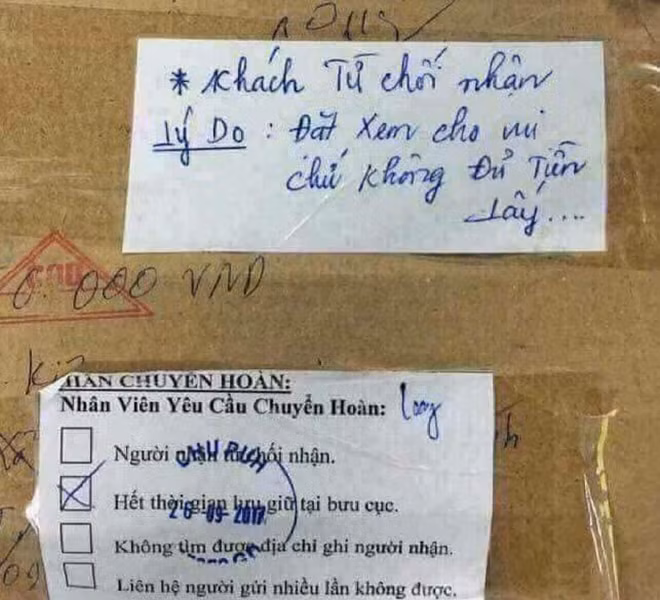 * Khách Từ chối nhận
Lý Do : Đặt Xem cho vui
chứ không Đủ Tiền
Lấy....
000 VND
CHUYỂN HOÀN:
Nhân Viên Yêu Cầu Chuyển Hoàn: Long
Người nhận từ chối nhận.
Hết thời gian lưu giữ tại bưu cục.
26-09-2017
Không tìm được địa chỉ ghi người nhận.
Liên hệ người gửi nhiều lần không được.